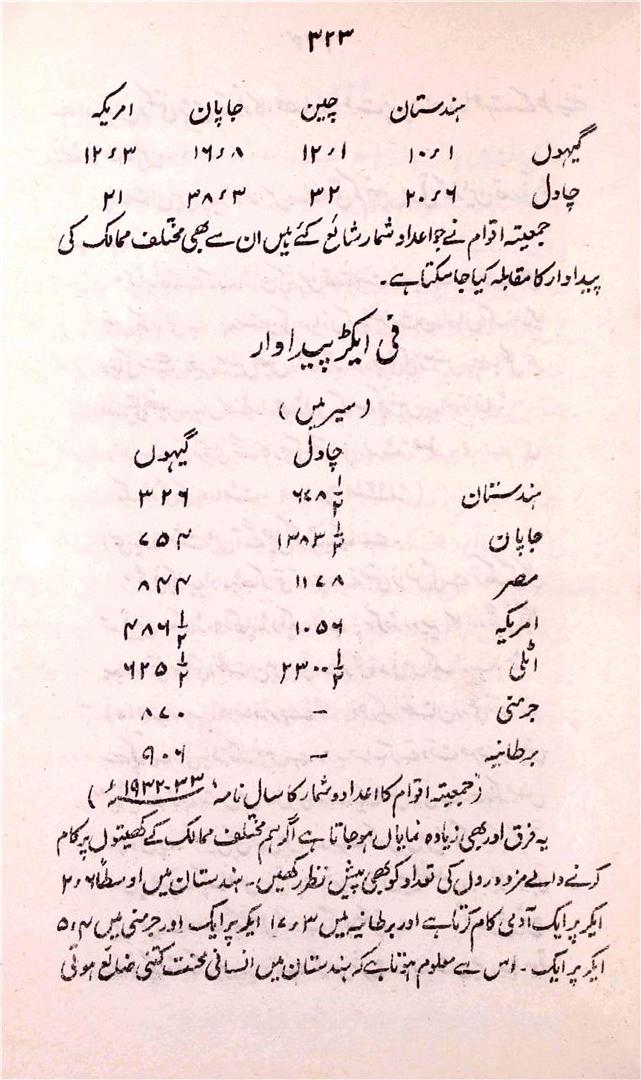 ۳۲۳
ہندستان چین جاپان امریکہ
گیہوں ۱۰ء۱ ۱۲ء۱ ۱۶ء۸ ۱۲ء۳
چاول ۲۰ء۶ ۳۲ ۳۸ء۳ ۲۱
جمعیتہ اقوام نے جو اعداد و شمار شائع کئے ہیں ان سے بھی مختلف ممالک کی
پیداوار کا مقابلہ کیا جا سکتا ہے۔
فی ایکڑ پیداوار
(سیر میں)
چاول گیہوں
ہندستان ۶۷۸½ ۳۲۶
جاپان ۱۳۸۳½ ۷۵۴
مصر ۱۱۷۸ ۸۴۴
امریکہ ۱۰۵۶ ۴۸۶½
اٹلی ۲۳۰۰½ ۶۲۵½
جرمنی — ۸۷۰
برطانیہ — ۹۰۶
(جمعیتہ اقوام کا اعداد و شمار کا سال نامہ ۳۳-۱۹۳۲ء)
یہ فرق اور بھی زیادہ نمایاں ہو جاتا ہے اگر ہم مختلف ممالک کے کھیتوں پر کام
کرنے والے مزدوروں کی تعداد کو بھی پیش نظر رکھیں۔ ہندستان میں اوسطاً ۲ء۶
ایکڑ پر ایک آدمی کام کرتا ہے اور برطانیہ میں ۱۷ء۳ ایکڑ پر ایک اور جرمنی میں ۵ء۴
ایکڑ پر ایک۔ اس سے معلوم ہوتا ہے کہ ہندستان میں انسانی محنت کتنی ضائع ہوتی